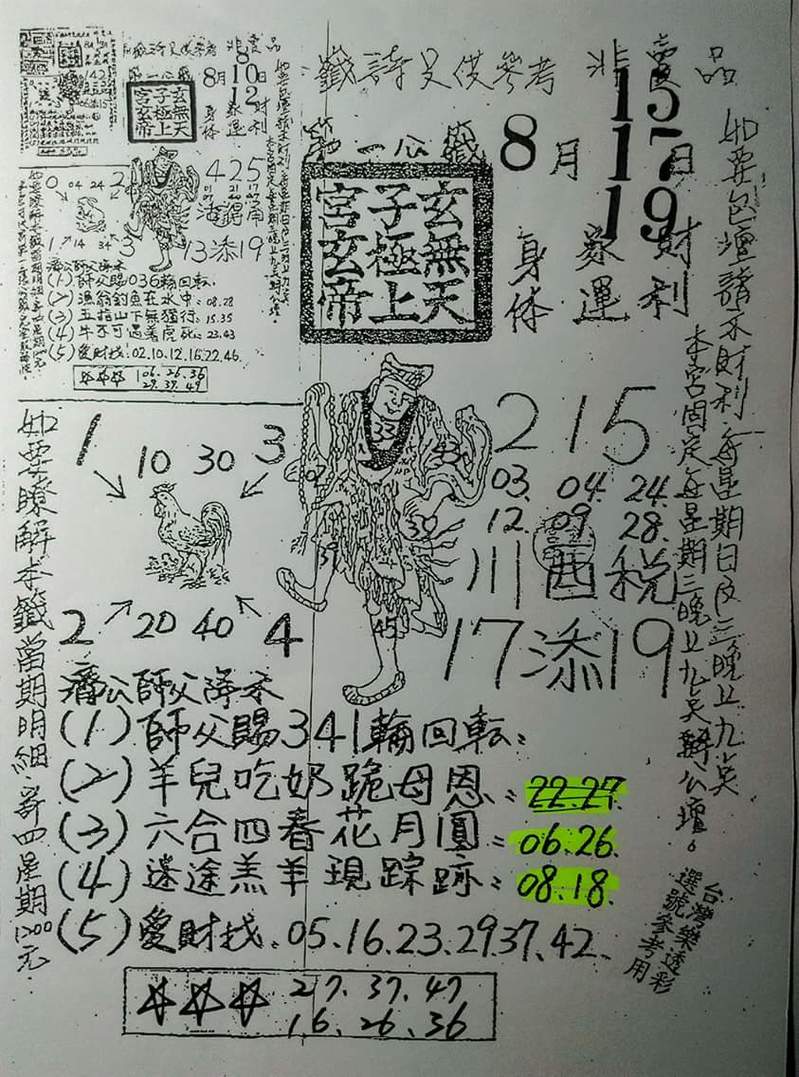 籤詩只供參考 非賣品
第一公籤 8月 15 17 19 日
玄無天
子極上
宮玄帝
身体 運 財利
如要包壇請示財利.每星期日及三晚上九点
本宮固定每星期三晚上九点辦公壇。
8月 10日
12
玄無天
子極上
宮玄帝
身体 運 財利
425
0 04 24 2
1 14 34 3
13添19
濟公師父降示
(1) 師父賜036輪回転.
(2) 漁翁釣魚在水中:08.28
(3) 五指山下無猴行:15.35
(4) 牛不可遇著虎死:23.43
(5) 愛財找:02.10.12.16.22.46.
☆☆☆ 06.26.36
27.37.49
1 10 30 3
2 20 40 4
215
03. 04. 24.
12. 09. 28.
川 酉 税
17添19
33 43 07 39 39 45
如要瞭解本籤當期明細.寄四星期1200元.
濟公師父降示
(1) 師父賜341輪回転:
(2) 羊兒吃奶跪母恩:22.27.
(3) 六合四春花月圓:06.26.
(4) 迷途羔羊現踪跡:08.18.
(5) 愛財找:05.16.23.29.37.42.
☆☆☆ 27.37.47
16.26.36
台灣樂透彩
選號參考用